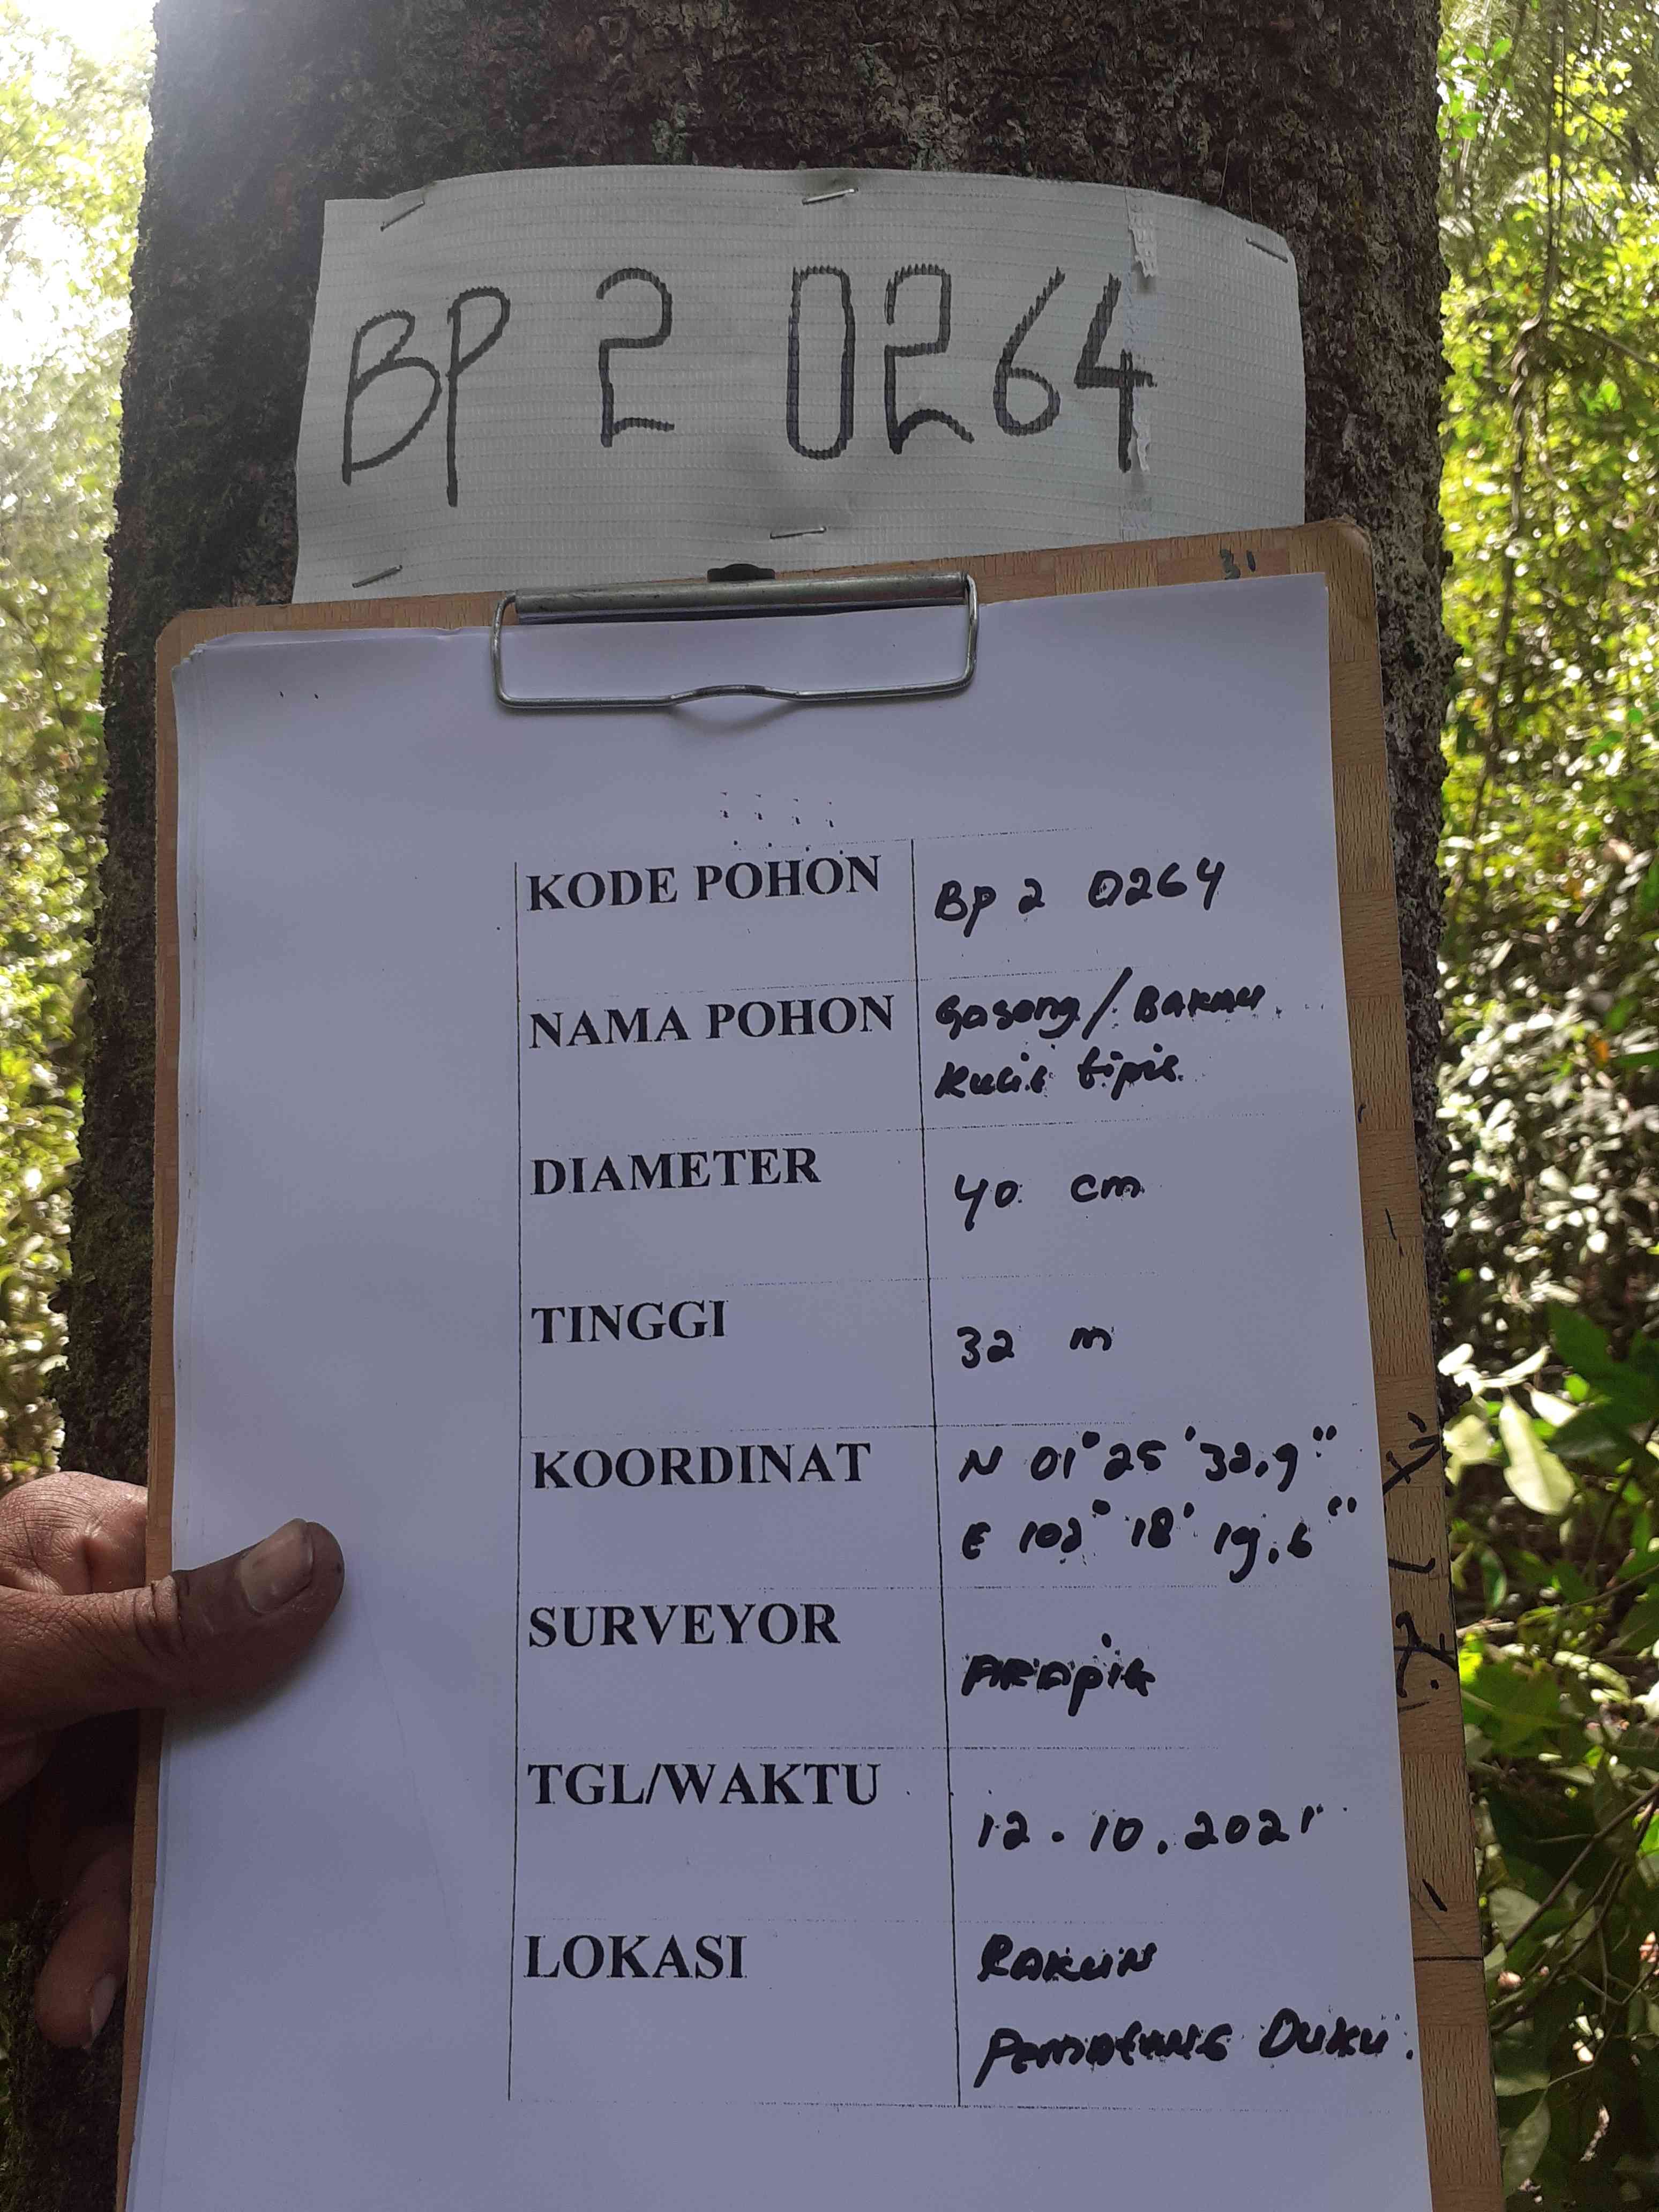 BP 2 0264
31
KODE POHON BP 2 0264
NAMA POHON Gasong/BAKAU
Kulit tipis
DIAMETER 40 cm
TINGGI 32 m
KOORDINAT N 01° 25' 32,9"
E 102° 18' 19,6"
SURVEYOR
TGL/WAKTU 12.10.2021
LOKASI RAKUN
PEMATANG DUKU.